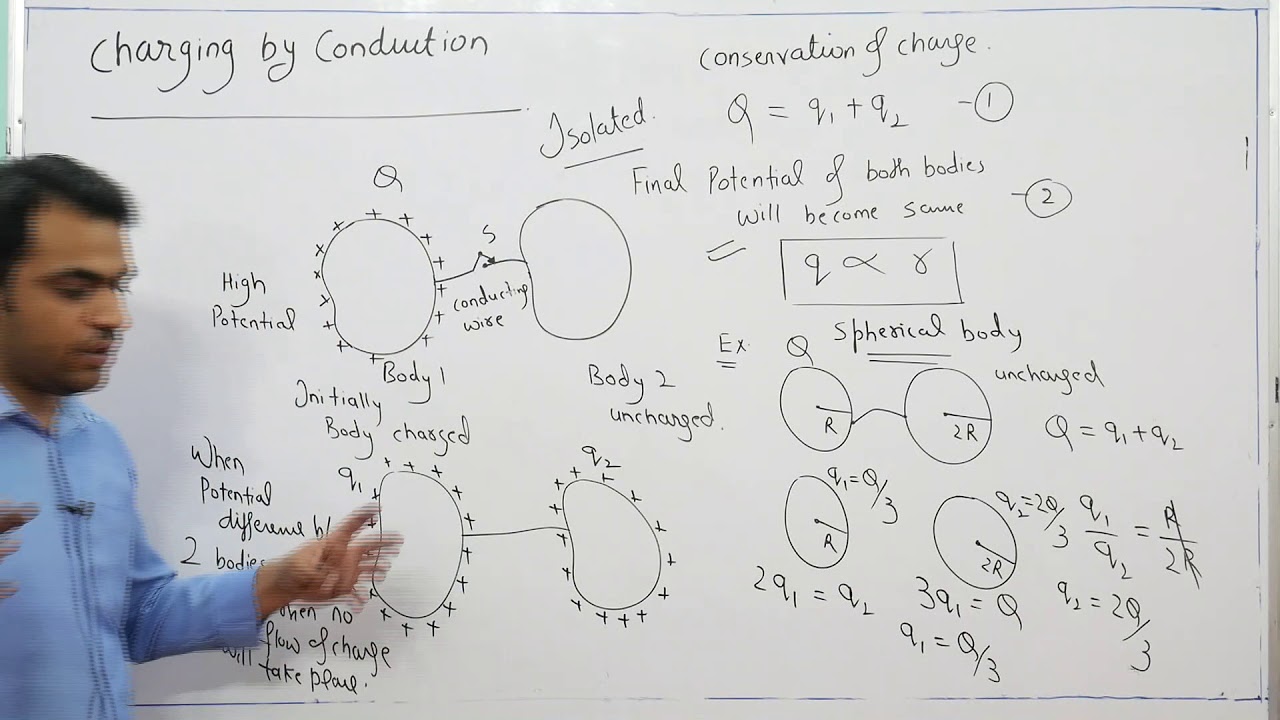 Charging by Conduction
Conservation of charge.
Q = q₁ + q₂ -①
Isolated.
Final Potential of both bodies
will become same -②
q ∝ r
Q
S
High
Potential
conducting
wire
Body 1
Initially
Body charged
Body 2
uncharged.
Ex.
Spherical body
Q
uncharged
R
2R
Q = q₁ + q₂
When
Potential
difference b/
2 bodies
when no
flow of charge
will take place.
q₁
q₂
q₁ = Q/3
R
q₂ = 2Q/3
2R
q₁/q₂ = R/2R
2q₁ = q₂
3q₁ = Q
q₁ = Q/3
q₂ = 2Q/3